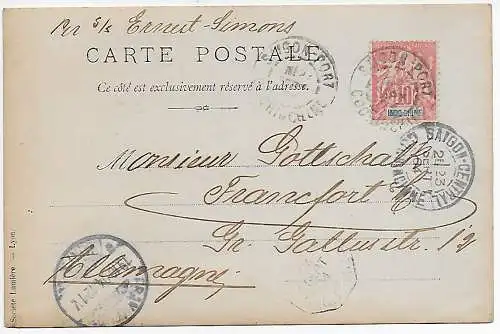 Per s/s Ernest-Simons
CARTE POSTALE
Ce côté est exclusivement réservé à l'adresse.
SAIGON-PORT
SAIGON-PORT
10
INDO-CHINE
SAIGON-CENTRAL
Monsieur Gottschalk
Francfort
Gr Gallusstr 12
Allemagne
Société Lumière — Lyon.